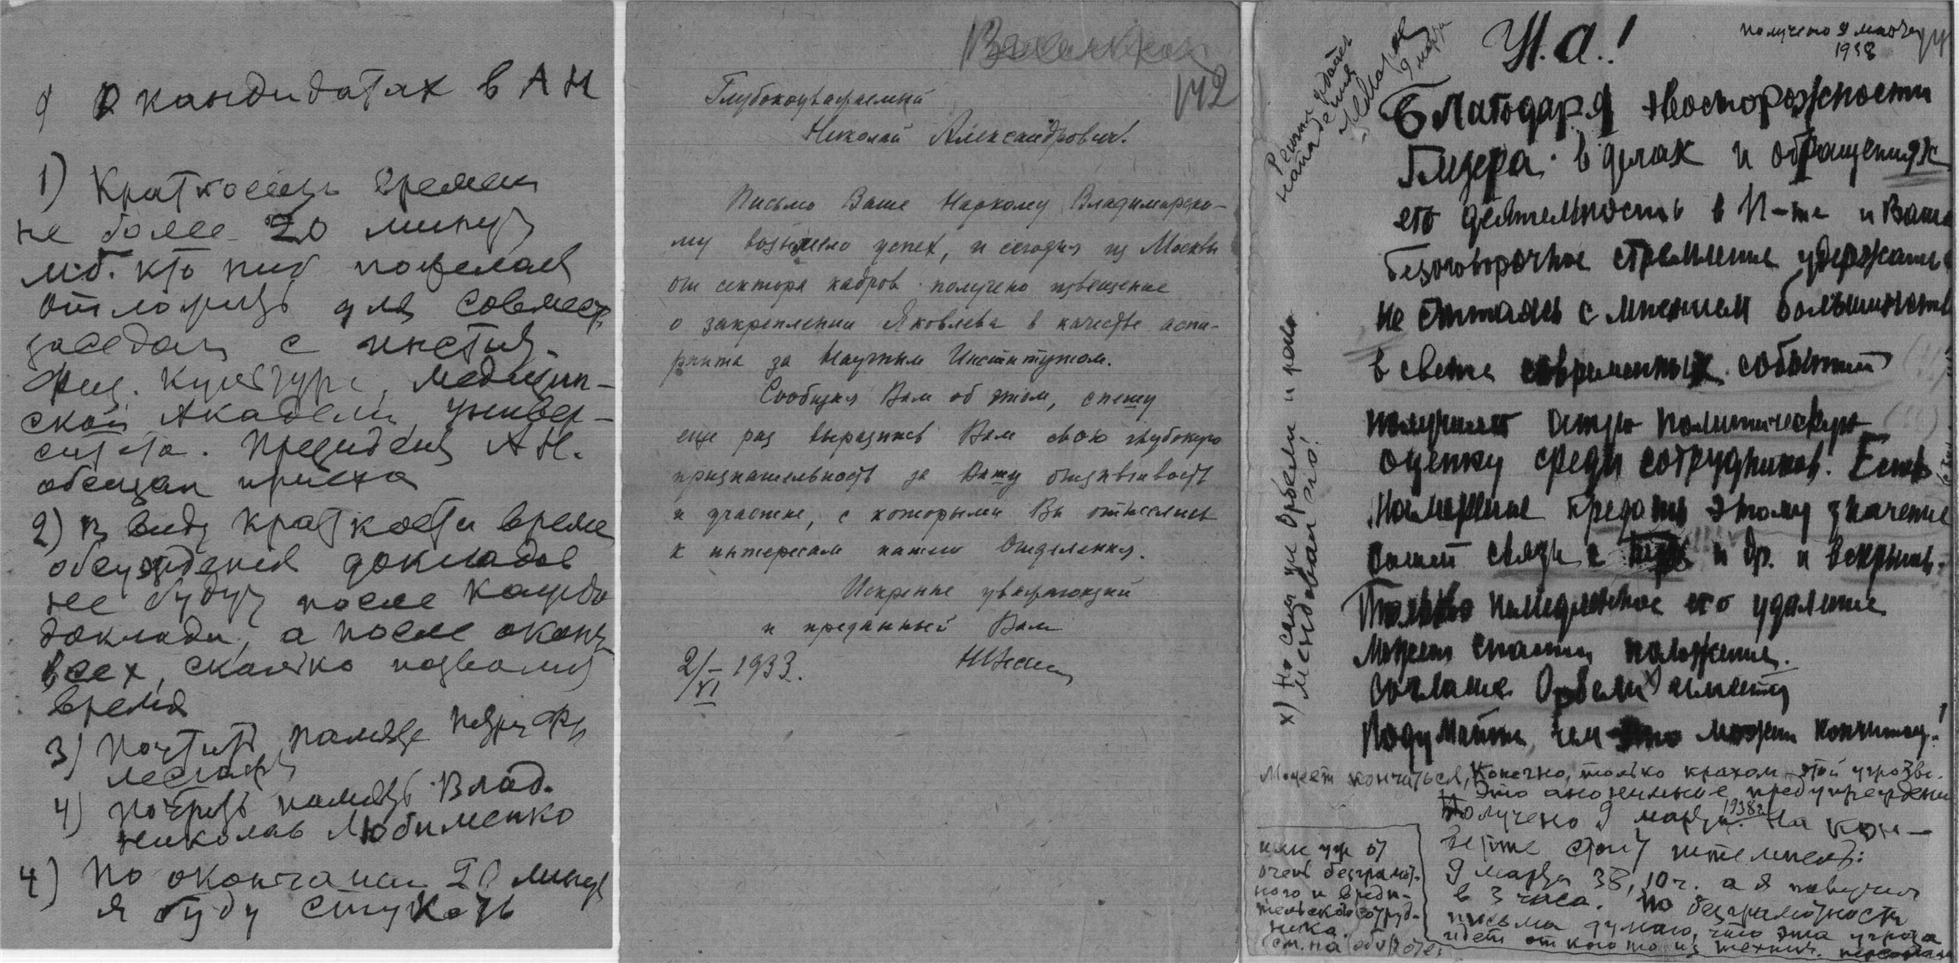 О кандидатах в АН
1) Краткость времени
не более 20 минут
м.б. кто ниб пожелает
отложить для совмест.
заседан с инстит.
физ. культуры, медицин-
ской Академии, универ-
ситета. Президент АН.
обещал приехать
2) В виду краткости време
обсуждения докладов
не будут после каждо
доклада, а после оконч
всех, сколько позволит
время
3) Почтить память
4) Почтить память Влад.
Николав Любименко
4) По окончании 20 минут
я буду стучать
142
Глубокоуважаемый
Николай Александрович!
Письмо Ваше Наркому Владимирско-
му возымело успех, и сегодня из Москвы
от сектора кадров получено извещение
о закреплении Яковлева в качестве аспи-
ранта за Научным Институтом.
Сообщая Вам об этом, спешу
еще раз выразить Вам свою глубокую
признательность за Вашу отзывчивость
и участие, с которыми Вы отнеслись
к интересам нашего Отделения.
Искренне уважающий
и преданный Вам
2/VI – 1933.
получено 9 марта
1938
Н.А.!
Благодаря
в делах и обращениях
его деятельность в И-те и Ваше
безоговорочное стремление удержать
не считаясь с мнением большинства
в свете современных событий
получило острую политическую
оценку среди сотрудников. Есть
намерение придать этому значение
вашей связи с и др. и вскрыть.
Только немедленное его удаление
может спасти положение.
Согласие Орбели имеется
Подумайте, чем это может кончиться!
Может кончиться, конечно, только крахом этой угрозы.
Это анонимное предупреждение
Получено 9 марта 1938 г. На кон-
верте стоит штемпель:
9 марта 38, 10 ч. а я получил
в 3 часа. По безграмотности
письма думаю, что эта угроза
идет от кого то из технич. персонала
или
очень безграмот-
ного и вреди-
тельского сотруд-
ника.
(см. на обороте)
х) Но сам же Орбели и реко
мендовал его!